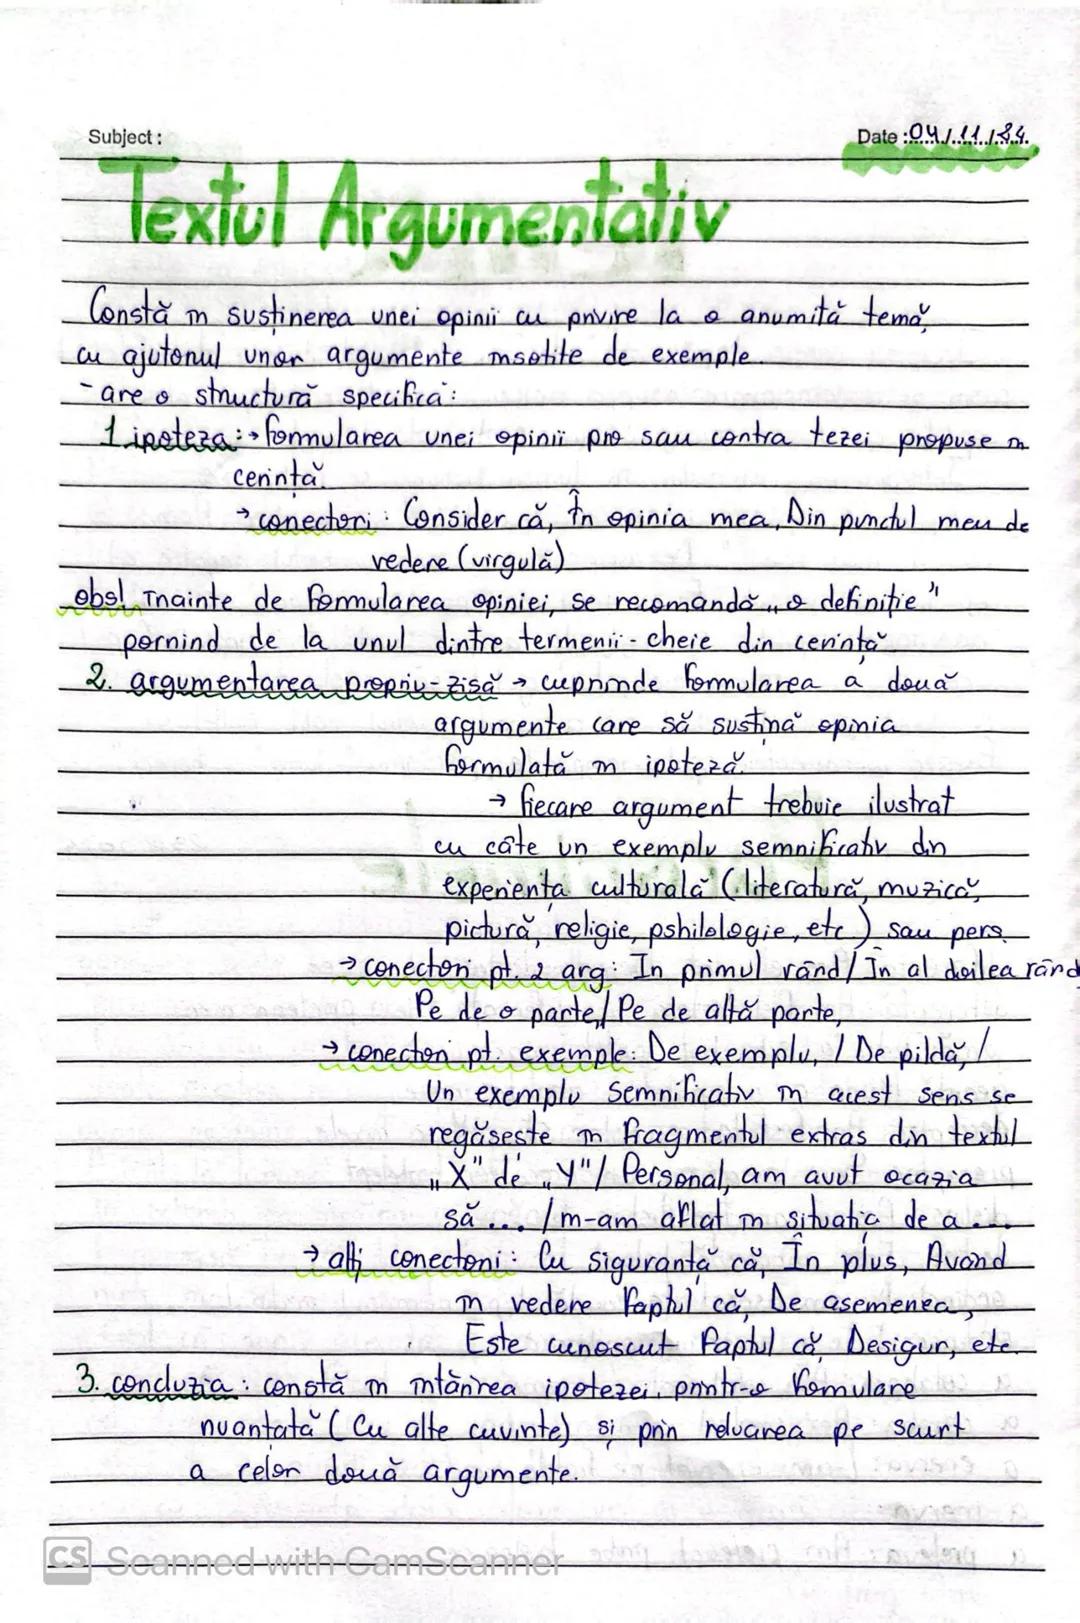 Subject :
Date : 04/11/24.
Textul Argumentativ
Constă în susținerea unei opinii cu privire la o anumită temă,
cu ajutorul unor argumente însoțite de exemple.
- are o structură specifică :
1. ipoteza : → formularea unei opinii pro sau contra tezei propuse în
cerință.
→ conectori : Consider că, În opinia mea, Din punctul meu de
vedere (virgulă)
obs! înainte de formularea opiniei, se recomandă „o definiție"
pornind de la unul dintre termenii - cheie din cerință
2. argumentarea propriu-zisă → cuprinde formularea a două
argumente care să susțină opinia
formulată în ipoteză.
→ fiecare argument trebuie ilustrat
cu câte un exemplu semnificativ din
experiența culturală (literatură, muzică,
pictură, religie, pshilologie, etc.) sau pers.
→ conectori pt. 2 arg : În primul rând / În al doilea rând
Pe de o parte, / Pe de altă parte,
→ conectori pt. exemple : De exemplu, / De pildă, /
Un exemplu semnificativ în acest sens se
regăsește în fragmentul extras din textul
„X" de „Y" / Personal, am avut ocazia
să ... / m-am aflat în situația de a ...
→ alți conectori : Cu siguranță că, În plus, Având
în vedere faptul că, De asemenea,
Este cunoscut faptul că, Desigur, etc.
3. concluzia : constă în întărirea ipotezei, printr-o formulare
nuanțată (Cu alte cuvinte) și prin reluarea pe scurt
a celor două argumente.
CS Scanned with CamScanner